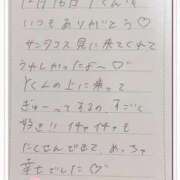 12月16日 Tくんも
いつもありがとう♡
サンタコス見に来てくれて
うれしかったよ〜♡
Tくんの上に乗って
ぎゅーってするの すごく
好き!! イチャイチャも
たくさんできて、めっちゃ
幸せでした♡